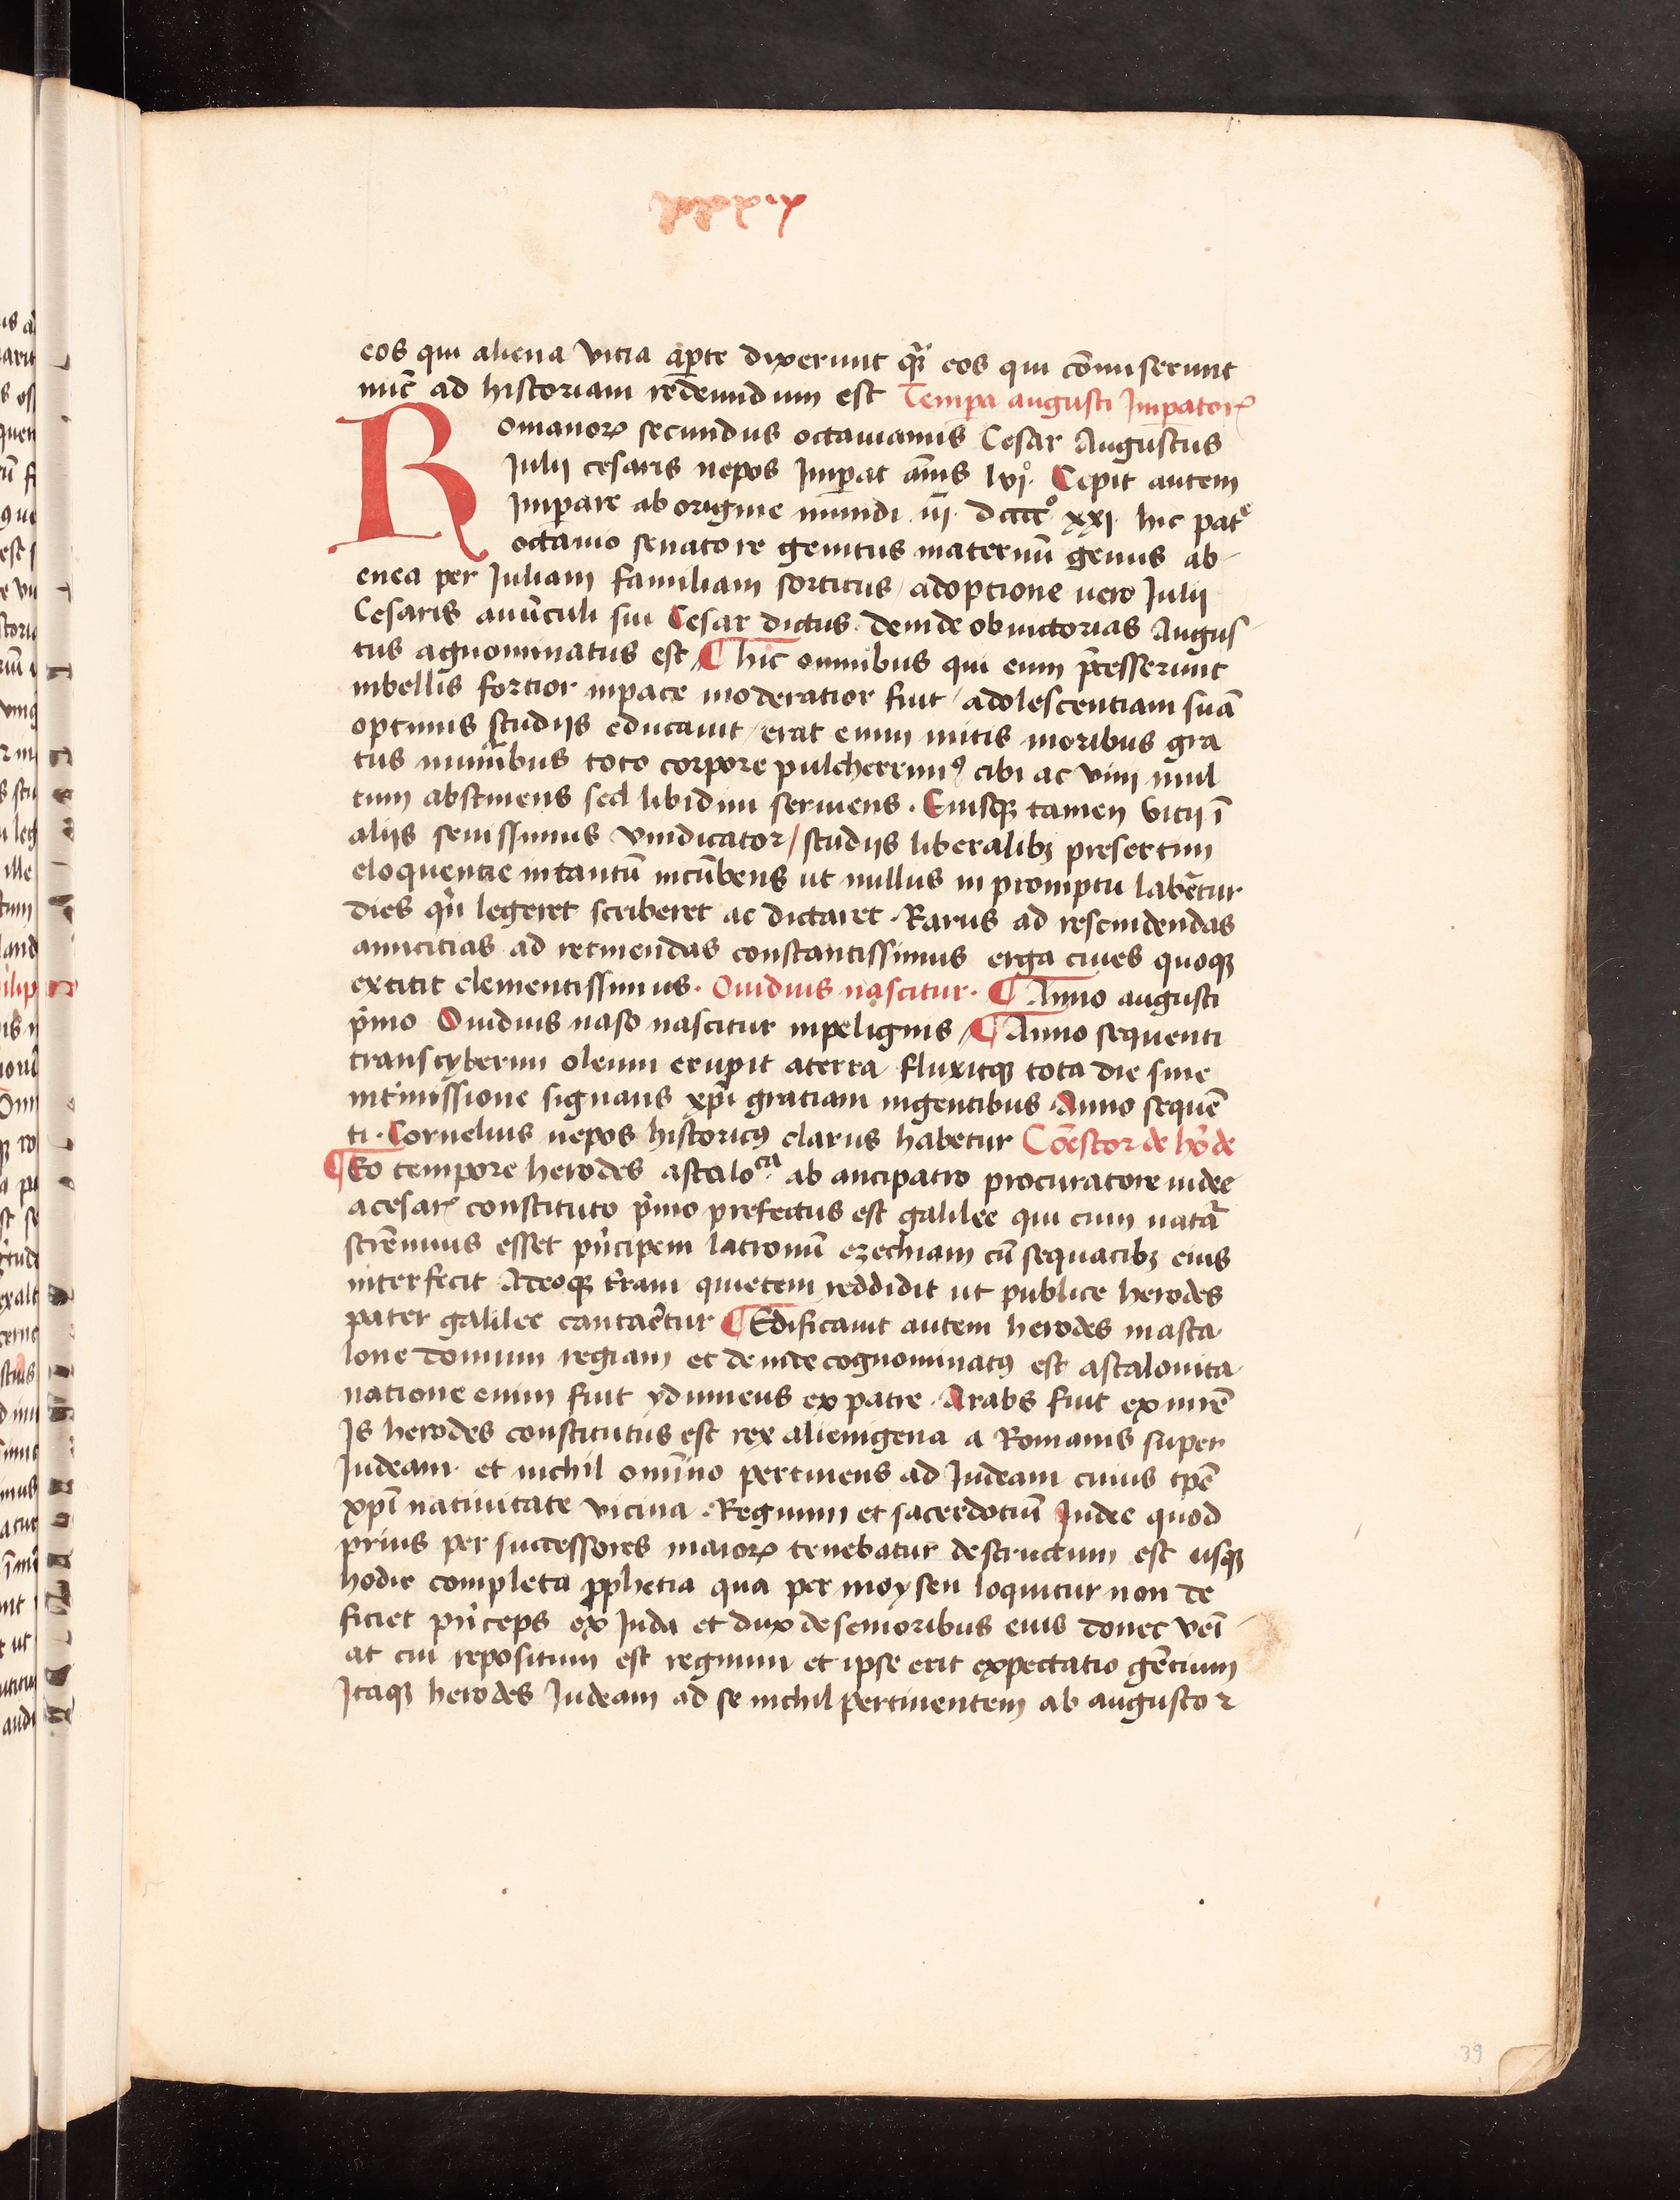 xxxix
eos qui aliena vitia aꝑte dixerunt quā eos qui cōmiserunt
nūc ad historiam redeundum est Tempa augusti Impatorꝭ
Romanorꝝ secundus octauianus Cesar Augustus
Julij cesaris nepos Imꝑat annis lvjº Cepit autem
Imꝑare ab origine mundi iij dcccc xxj hic patͤ
octauio senatore genitus maternū genus ab
enea per Juliam familiam sortitus / adoptione uero Julij
Cesaris auūculi sui Cesar dictus deinde ob uictorias Augus
tus agnominatus est ¶ hic omnibus qui eum p̄cesserunt
inbellis fortior inpace moderatior fuit / adolescentiam suā
optimis studijs educauit / erat enim mitis moribus gra
tus munībus toto corpore pulcherrimꝰ cibi ac vini mul
tum abstinens sed libidini seruiens · Eiusqꝫ tamen vitij ī
alijs seuissimus vindicator / studijs liberalibꝫ presertim
eloquentie intantū incūbens ut nullus in promptu labētur
dies qͥn legeret scriberet ac dictaret · Rarus ad rescindendas
amicitias ad retinendas constantissimus erga ciues quoqꝫ
extitit clementissimus · Ouidius nascitur · ¶ Anno augusti
pͥmo Ouidius naso nascitur inpelignis ¶ Anno sequenti
transtyberim oleum erupit aterra fluxitqꝫ tota die sine
intͥmissione signans xp̄i gratiam ingentibus Anno sequē
ti · Cornelius nepos historicꝰ clarus habetur Cōestor de hͦde
¶ Eo tempore herodes ascaloᶜⁱᵃ ab antipatro procuratore iudee
acesarꝭ constituto pͥmo prefectus est galilee qui cum natūͣ
strēnuus esset pͥncipem latronū ezechiam cū sequacibꝫ eius
interfecit Adeoqꝫ t̄ram quietem reddidit ut publice herodes
pater galilee cantaret̄ur ¶ Edificauit autem herodes inasca
lone domum regiam et deinde cognominatꝰ est ascalonita
natione enim fuit ydumeus ex patre · Arabs fuit ex mr̄e
Is herodes constitutus est rex alienigena a Romanis super
Judeam et nichil omīno pertinens ad Judeam cuius tp̄e
xp̄i natiuitate vicina · Regnum et sacerdotiū Judee quod
prius per successores maiorꝝ tenebatur destructum est usqꝫ
hodie completa ꝓphetia qua per moysen loquitur non de
ficiet pͥnceps ex Juda et dux de senioribus eius donec veī
at cui repositum est regnum et ipse erit expectatio gētium
Itaqꝫ herodes Judeam ad se nichil pertinentem ab augusto ꝛ
39